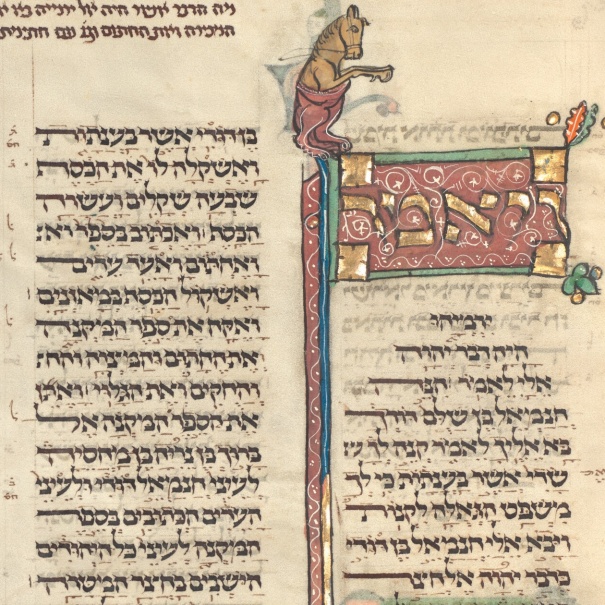 היה אל
ויאמר
ירמיהו
היה דבר יהוה
אלי לאמר הנה
חנמאל בן שלם דודך
בא אליך לאמר קנה לך
שדי אשר בענתות כי לך
משפט הגאלה לקנות
ויבא אלי חנמאל בן דודי
כדבר יהוה אל חצר
בן דודי אשר בענתות
ואשקלה לו את הכסף
שבעה שקלים ועשרה
הכסף ואכתוב בספר
ואחתום ואעד עדים
ואשקול הכסף במאזנים
ואקח את ספר המקנה
את החתום והמצוה
והחקים ואת הגלוי ואתן
את הספר המקנה אל
ברוך בן נריה בן מחסיה
לעיני חנמאל דודי ולעיני
העדים הכתובים בספר
המקנה לעיני כל היהודים
הישבים בחצר המטרה